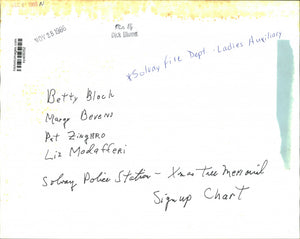 NOV 25 1986
Photo By
Dick Blume
*Solvay Fire Dept - Ladies Auxiliary
Betty Bloch
Marge Bevens
Pat Zingaro
Liz Modafferi
Solvay Police Station - Xmas tree Memorial
Sign up Chart